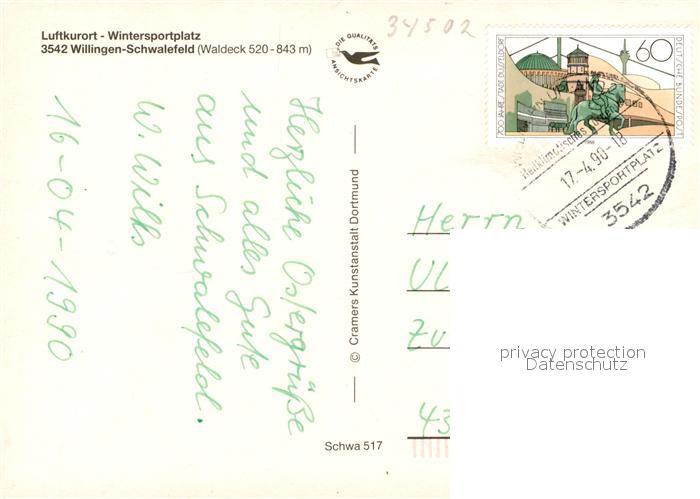 Luftkurort - Wintersportplatz
3542 Willingen-Schwalefeld (Waldeck 520 - 843 m)
DIE QUALITÄTS
ANSICHTSKARTE
34502
60
DEUTSCHE BUNDESPOST
700 JAHRE STADT DÜSSELDORF
1988
Heilklimatisches
17.-4.90-18
WINTERSPORTPLATZ
3542
Herzliche Ostergrüße
und alles Gute
aus Schwalefeld.
W. Wilks
16-04-1990
© Cramers Kunstanstalt Dortmund
Herrn
Ul
Zu
43
privacy protection
Datenschutz
Schwa 517